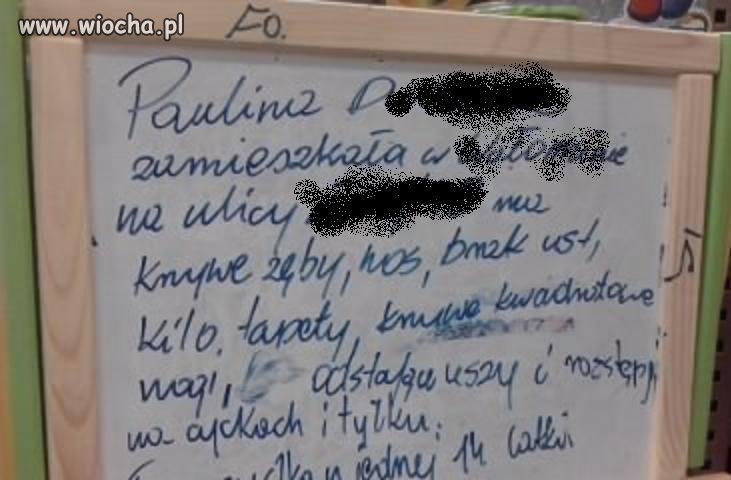 www.wiocha.pl
Fo.
Paulina D
zamieszkała w
na ulicy ma
krzywe zęby, nos, brak ust,
kilo tapety, krzywe kwadratowe
nogi, odstające uszy i rozstępy
na cyckach i tyłku.
jednej 14 latki